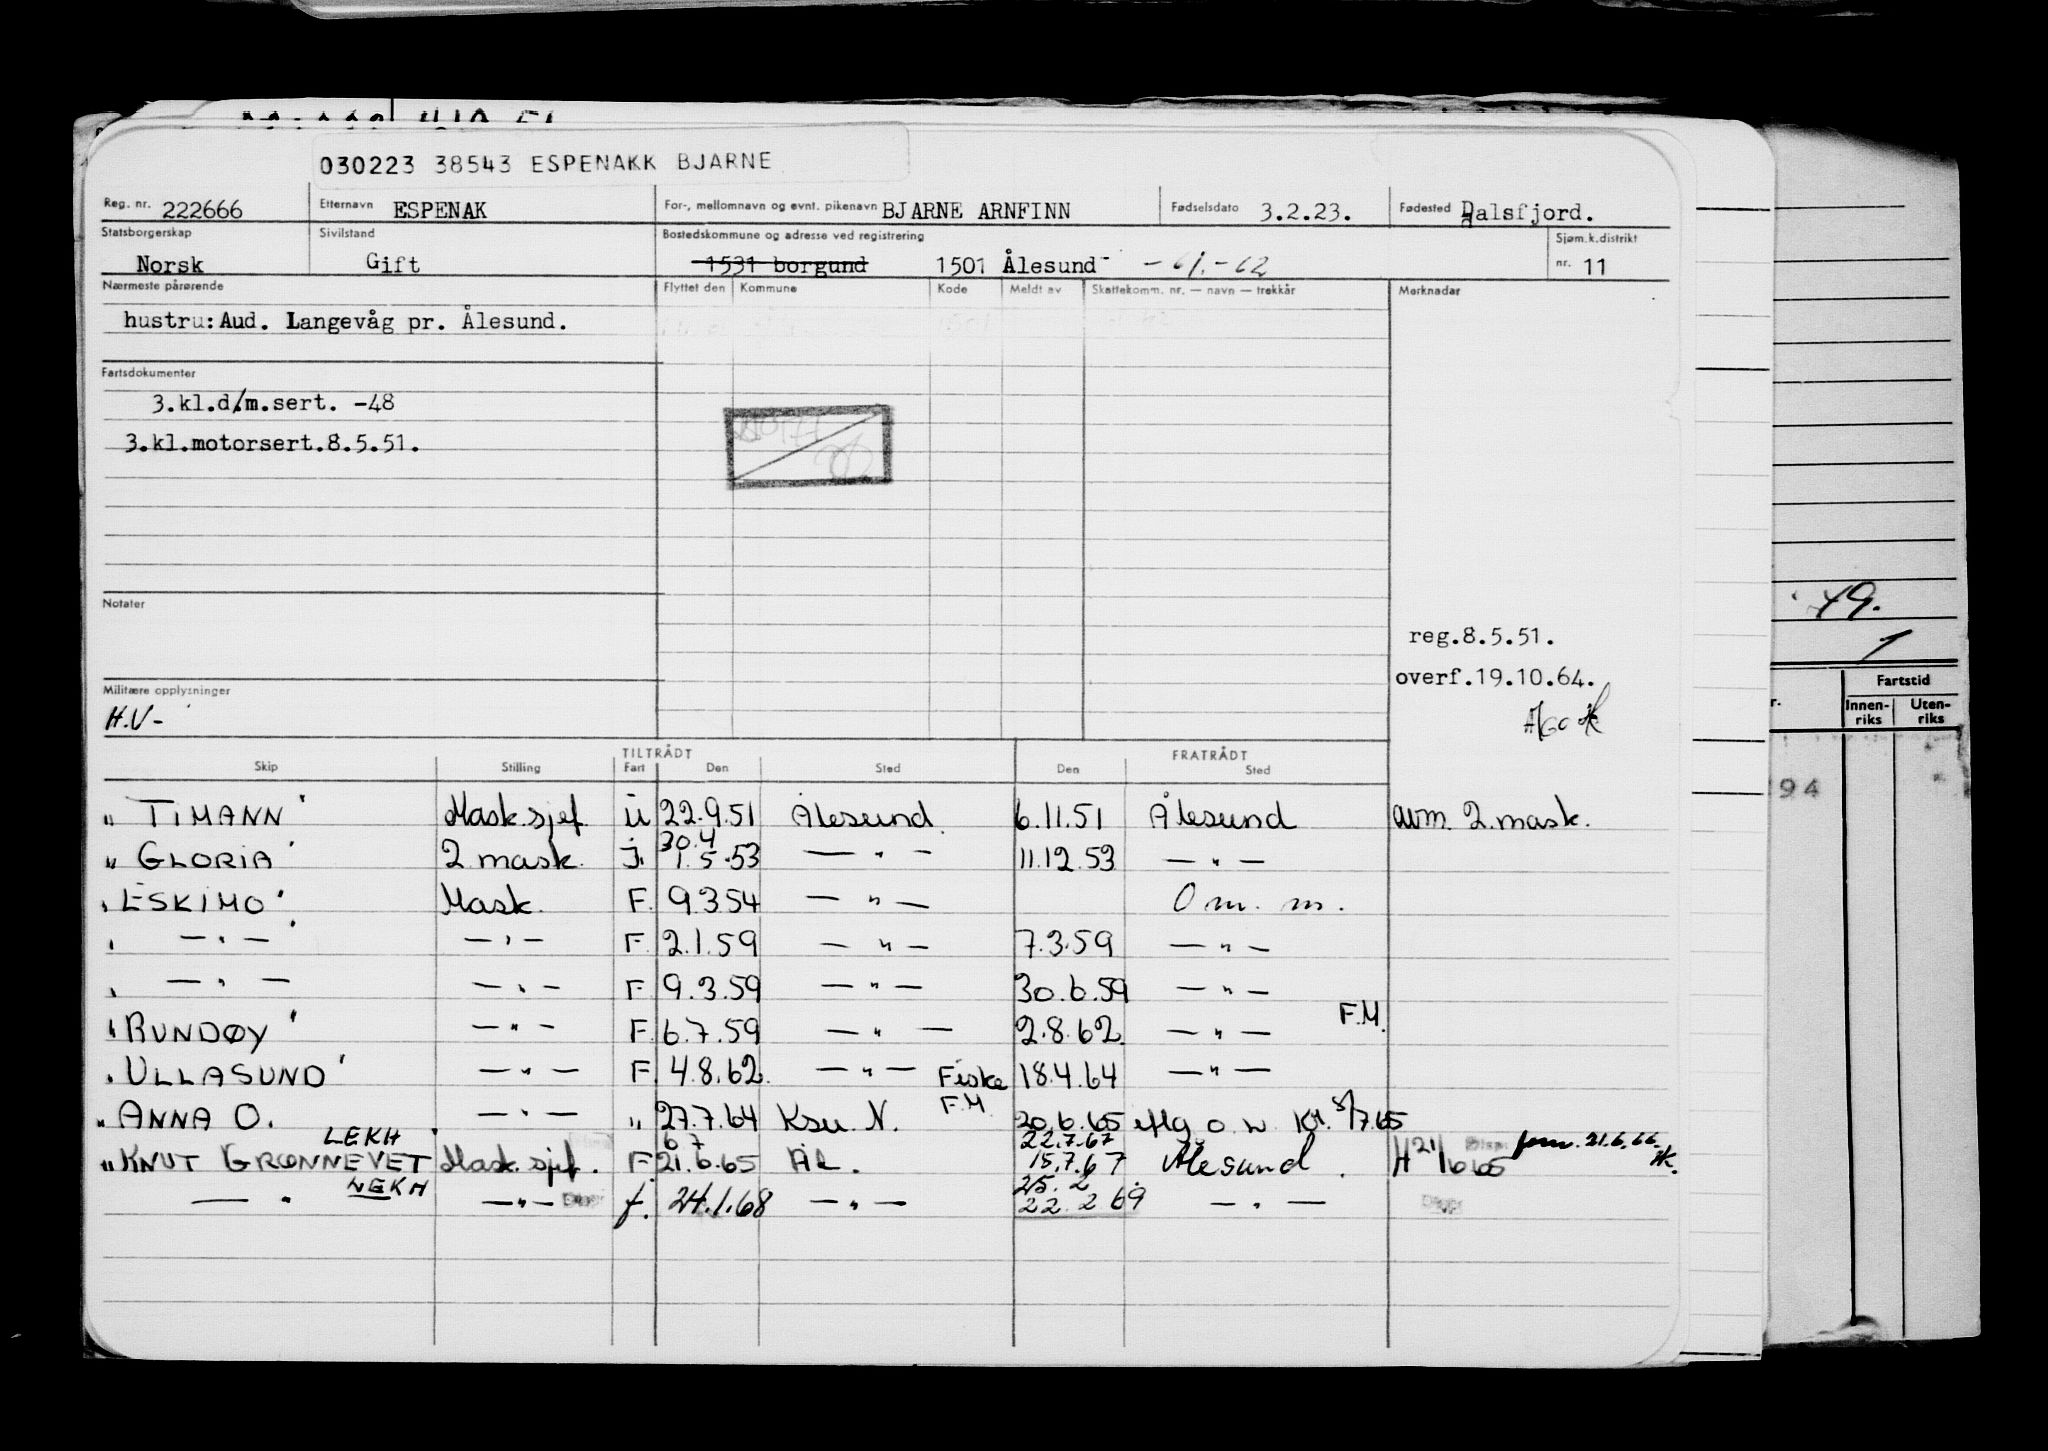 030223 38543 ESPENAKK BJARNE
Reg. nr. 222666 Etternavn ESPENAK For-, mellomnavn og evnt. pikenavn BJARNE ARNFINN Fødselsdato 3.2.23. Fødested Dalsfjord.
Statsborgerskap Sivilstand Bostedskommune og adresse ved registrering Sjøm.k.distrikt
Norsk Gift 1531 borgund 1501 Ålesund - 61. - 62 nr. 11
Nærmeste pårørende Flyttet den Kommune Kode Meldt av Skattekomm. nr. — navn — trekkår Merknader
hustru: Aud. Langevåg pr. Ålesund.
Fartsdokumenter
3.kl.d/m.sert. -48
3.kl.motorsert.8.5.51.
Notater
49.
reg.8.5.51.
1
overf.19.10.64.
Militære opplysninger
H.V-
Fartstid
Innen-riks Uten-riks
TILTRÅDT FRATRÅDT
Skip Stilling Fart Den Sted Den Sted
94
" TIMANN " Mask.sjef. U 22.9.51 Ålesund. 6.11.51 Ålesund avm. 2.mask.
30.4
" GLORIA " 2 mask. j. 1.5.53 — " — 11.12.53 — " —
" ESKIMO " Mask. F. 9.3.54 — " — O m. m.
" — " — " — " — F. 2.1.59 — " — 7.3.59 — " —
" — " — — " — F 9.3.59 — " — 30.6.59 — " —
F.M.
" RUNDØY " — " — F. 6.7.59 — " — 2.8.62. — " —
" ULLASUND " — " — F. 4.8.62. — " — Fiske 18.4.64 — " —
F.M.
" ANNA O. — " — " 27.7.64 Ksu. N. 20.6.65 o. 8/7.65
LEKH " 6 7 22.7.67
" KNUT GRØNNEVET Mask.sjef. F. 21.6.65 Ål. 15.7.67 Ålesund. H 21/6 65 21.6.66.
LEKH 25. 2
— " — — " — f. 24.1.68 — " — 22. 2 69 — " —